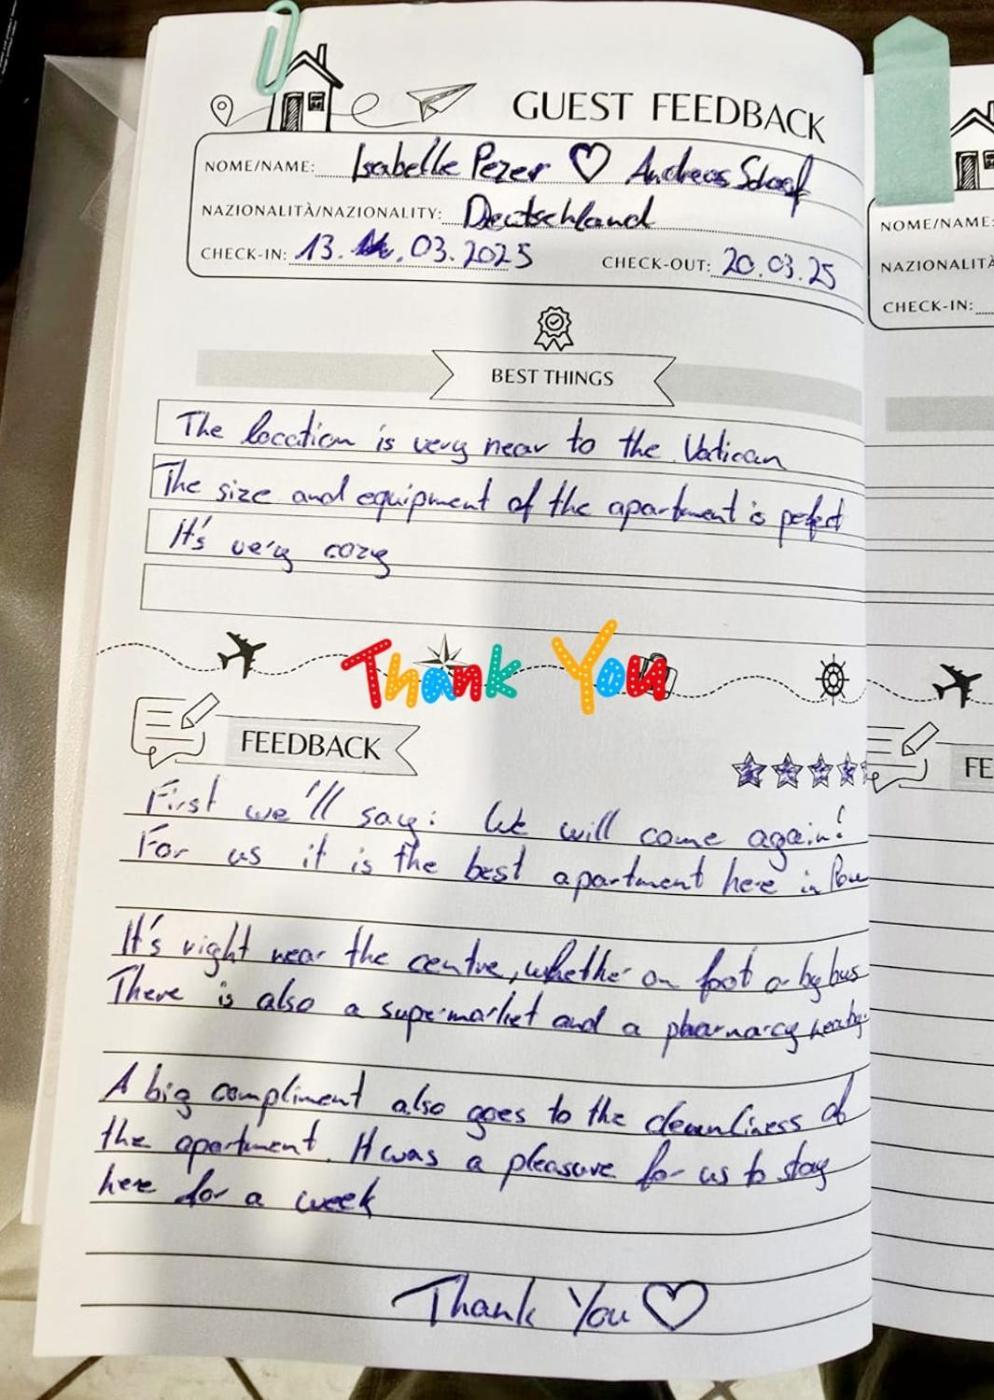 GUEST FEEDBACK
NOME/NAME: Isabelle Pezer ♡ Andreas
NAZIONALITÀ/NAZIONALITY: Deutschland
CHECK-IN: 13. .03.2025 CHECK-OUT: 20.03.25
BEST THINGS
The location is very near to the Vatican
The size and equipment of the apartment is pefect
It's very cozy
Thank You
FEEDBACK
First we'll say: We will come again!
For us it is the best apartment here in
It's right near the centre, whether on foot or by bus
There is also a supermarket and a pharmarcy nearby.
A big compliment also goes to the cleanliness of
the apartment. It was a pleasure for us to stay
here for a week
Thank You ♡
NOME/NAME:
NAZIONALITÀ
CHECK-IN:
FE